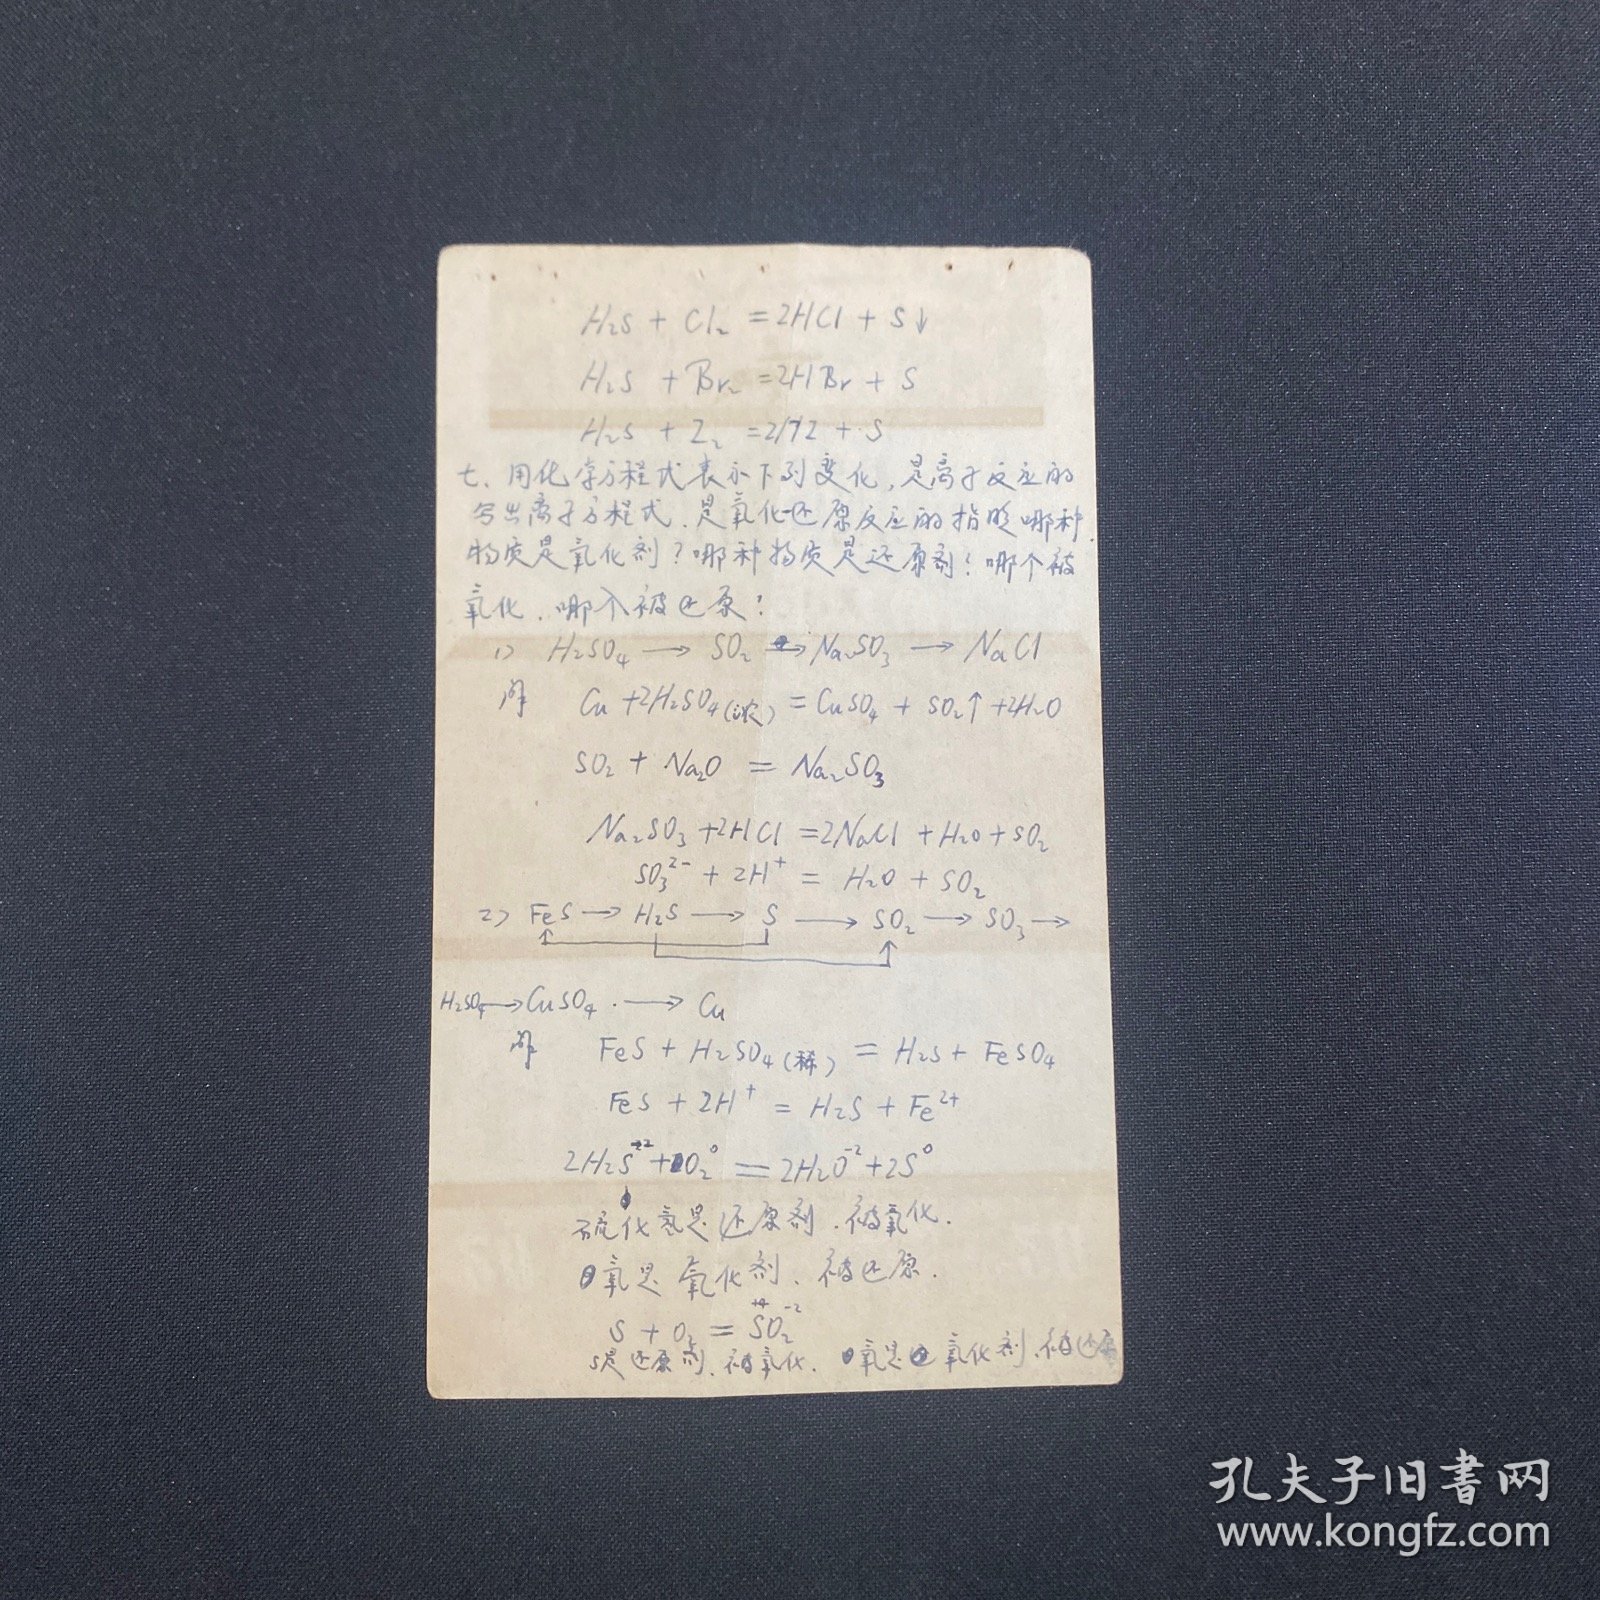 H₂S + Cl₂ = 2HCl + S↓
H₂S + Br₂ = 2HBr + S
H₂S + I₂ = 2HI + S
七、用化学方程式表示下列变化,是离子反应的
写出离子方程式、是氧化还原反应的指明哪种
物质是氧化剂?哪种物质是还原剂?哪个被
氧化、哪个被还原?
1) H₂SO₄ → SO₂ → Na₂SO₃ → NaCl
解 Cu + 2H₂SO₄(浓) = CuSO₄ + SO₂↑ + 2H₂O
SO₂ + Na₂O = Na₂SO₃
Na₂SO₃ + 2HCl = 2NaCl + H₂O + SO₂
SO₃²⁻ + 2H⁺ = H₂O + SO₂
2) FeS → H₂S → S → SO₂ → SO₃ →
H₂SO₄ → CuSO₄ → Cu
解 FeS + H₂SO₄(稀) = H₂S + FeSO₄
FeS + 2H⁺ = H₂S + Fe²⁺
2H₂S⁻² + O₂⁰ = 2H₂O⁻² + 2S⁰
硫化氢是还原剂、被氧化.
氧是氧化剂、被还原.
S + O₂ = S⁺⁴O₂⁻²
S是还原剂、被氧化、氧是氧化剂、被还原
孔夫子旧书网
www.kongfz.com